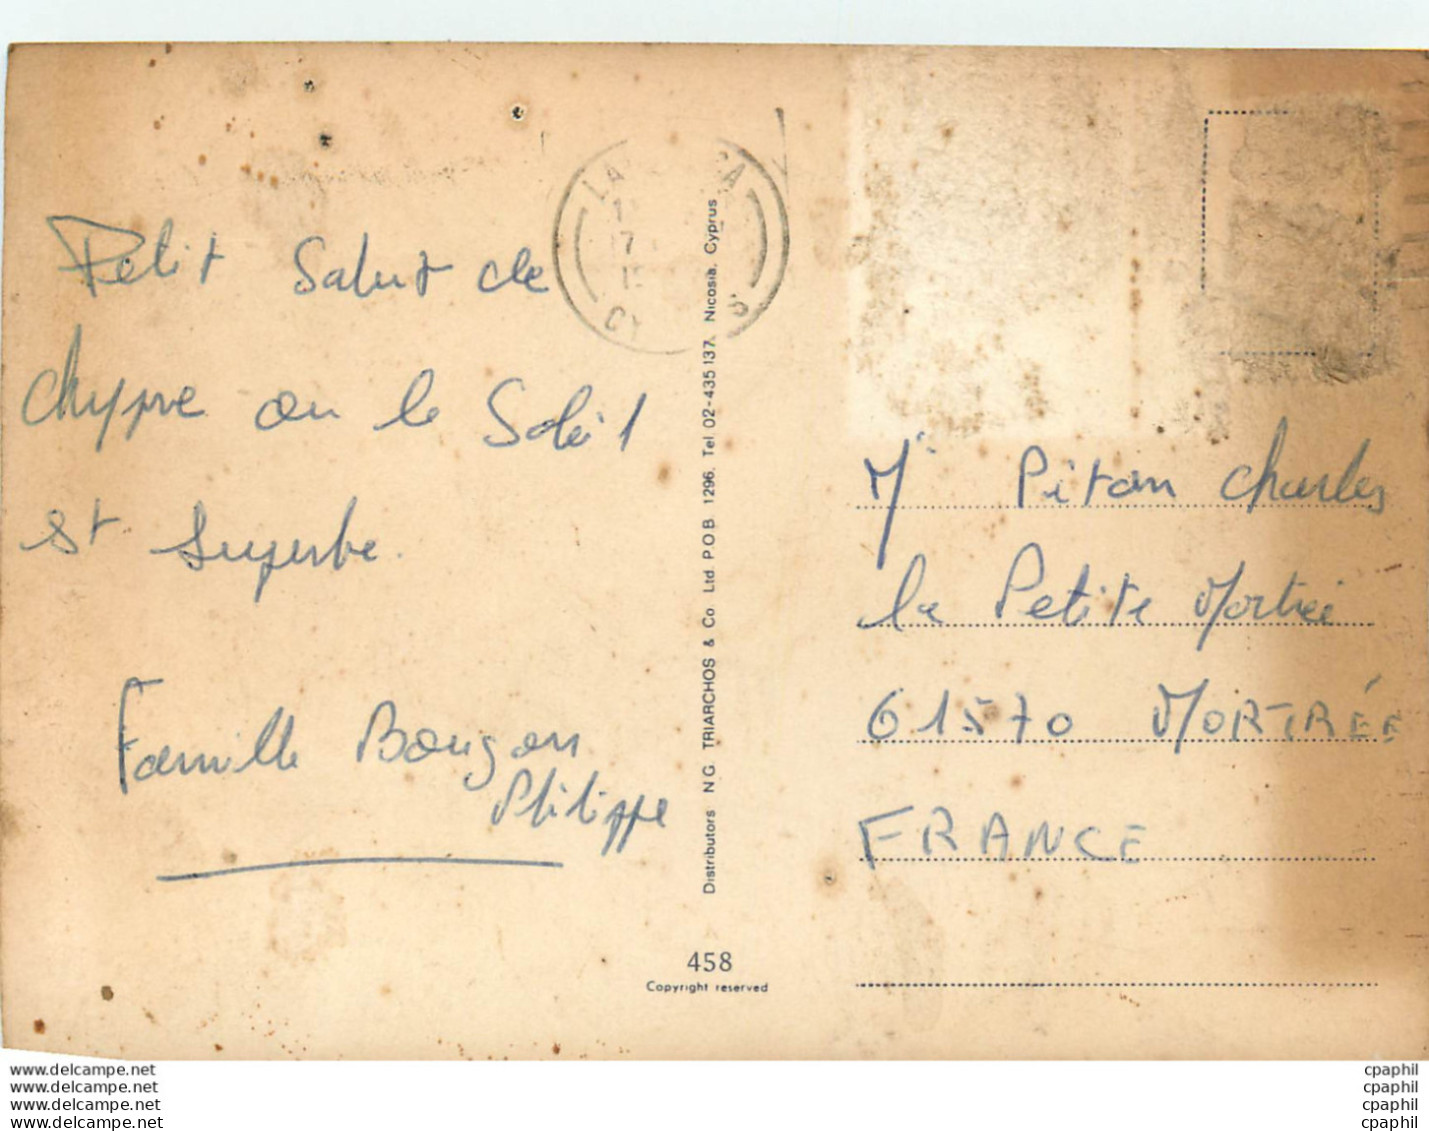 Petit Salut de
chypre ou le Soleil
st Superbe.
Famille Bougon
Philippe
CY S
Distributors N.G. TRIARCHOS & Co. Ltd. P.O.B. 1296. Tel 02-435137. Nicosia, Cyprus
458
Copyright reserved
Mr Pitan Charles
la Petite Mortrée
61570 MORTRÉE
FRANCE
www.delcampe.net
www.delcampe.net
www.delcampe.net
www.delcampe.net
cpaphil
cpaphil
cpaphil
cpaphil